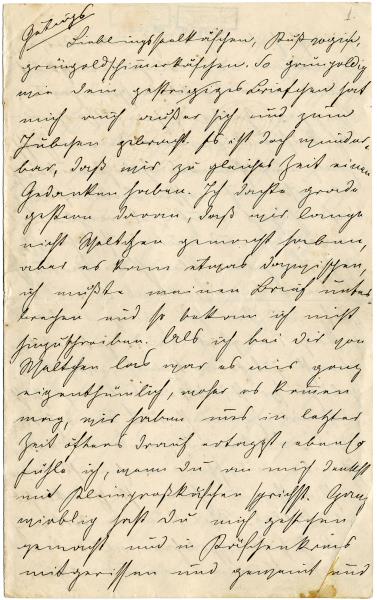 1.
Lieblingsseelkäschen,
grüngoldschimmerkäschen. So grüngoldig
wie dein gestriges Briefchen hat
mich auch außer sich und zum
gebracht. Es ist doch wunder-
bar, daß wir zu gleicher Zeit einen
Gedanken haben. Ich dachte grade
gestern daran, daß wir lange
nicht gemacht haben,
aber es kam etwas dazwischen,
ich mußte meinen Brief unter-
brechen und so bekam ich nicht
zuzuschreiben. Als ich bei dir von
las war es mir ganz
eigenthümlich, woher es kommen
mag, wir haben uns in letzter
Zeit öfters drauf ertappt, ebenso
fühle ich, wenn du an mich denkst
und sprichst. Ganz
wirblig hast du mich
gemacht und in
mitgerissen und gemeint und